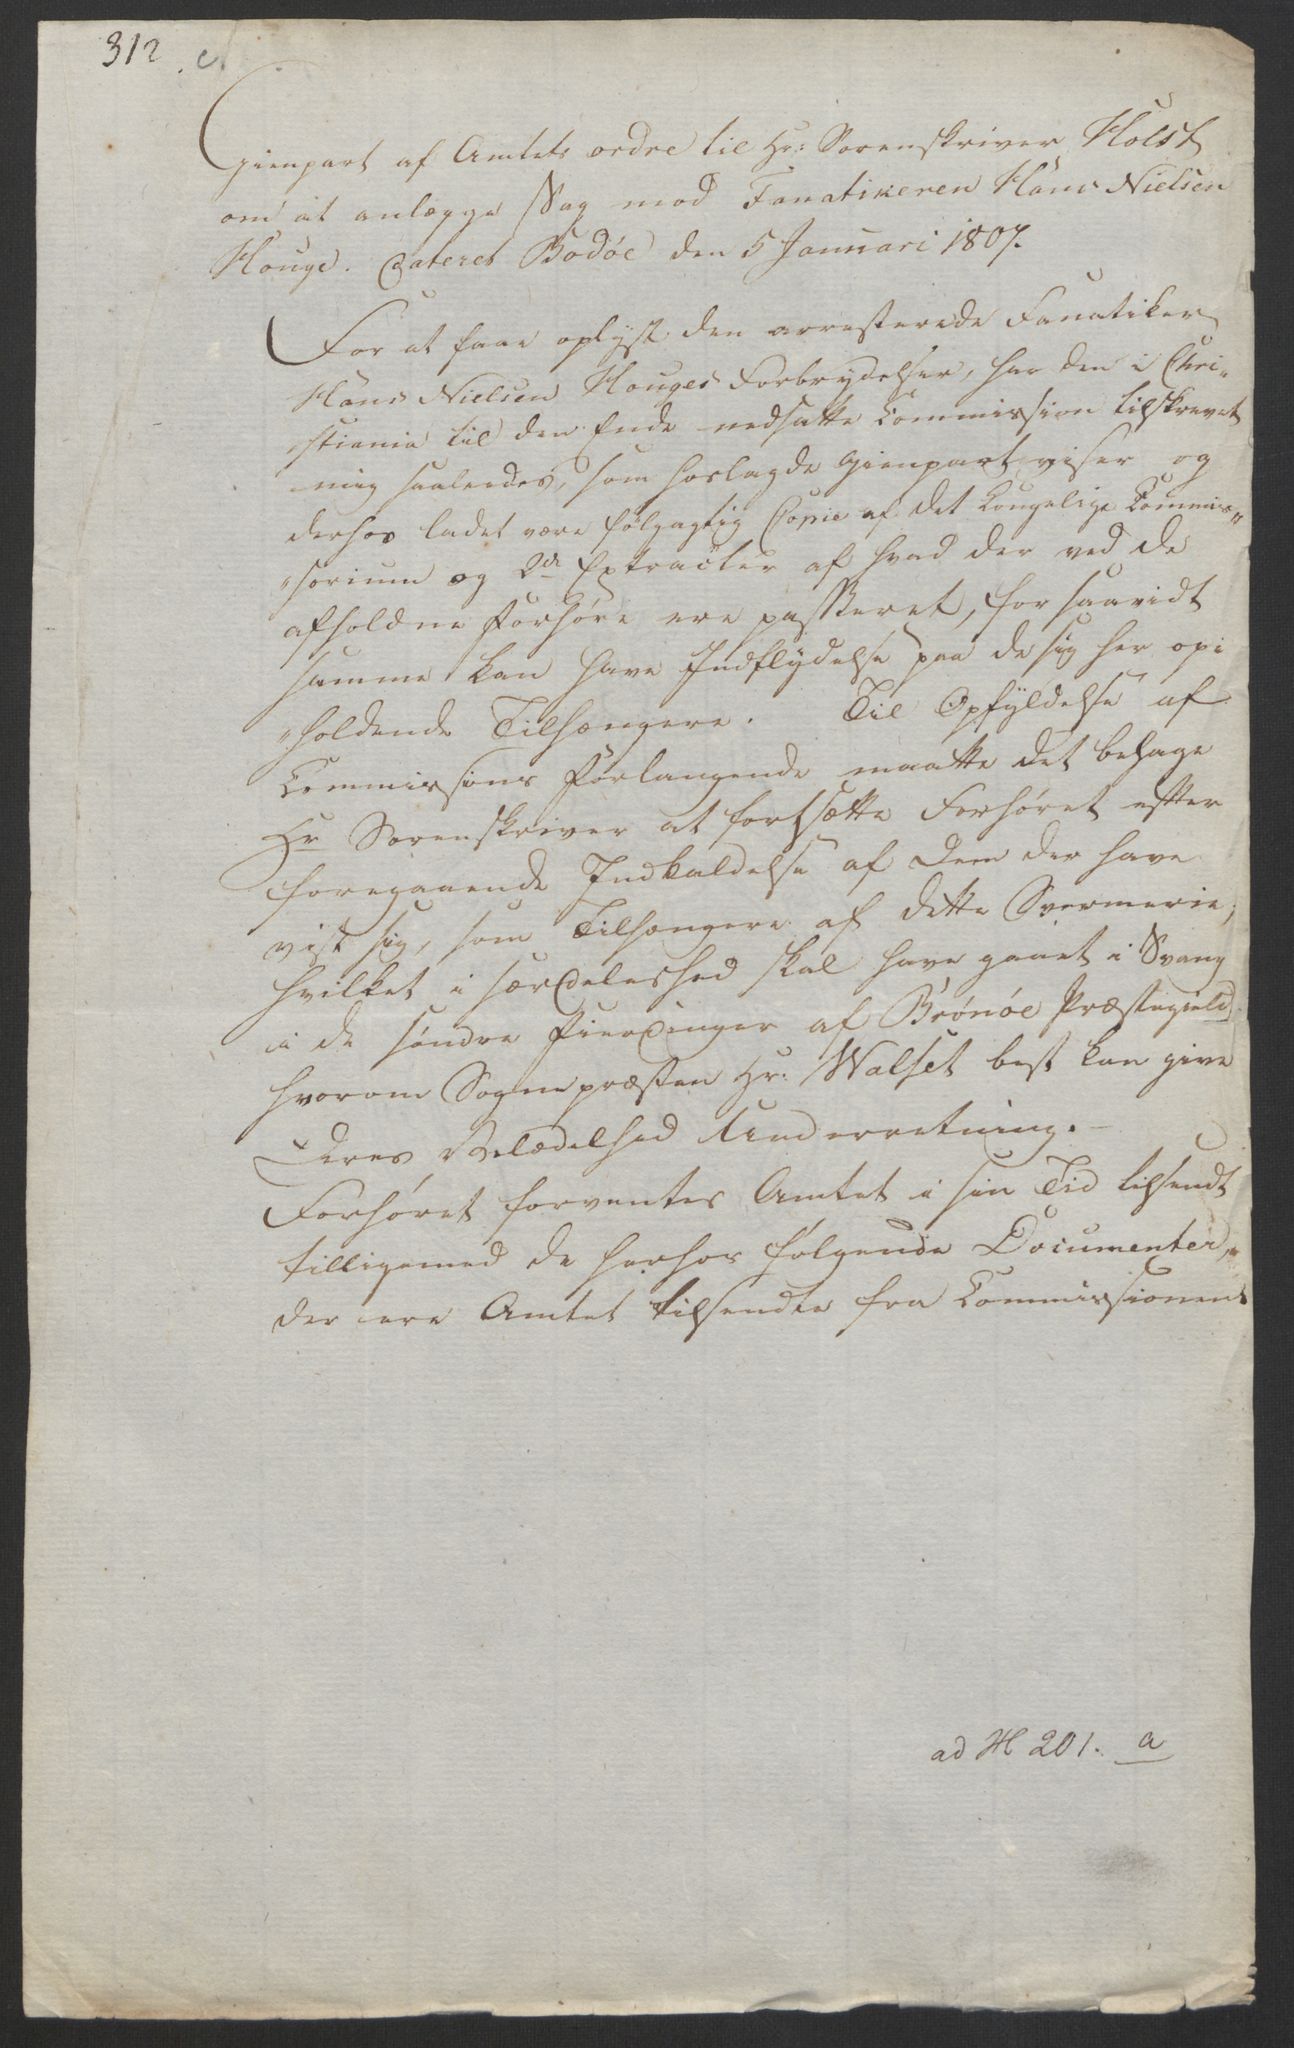 312 c.
Gienpart af Amtets ordre til Hr: Sorenskriver Holst
om at anlægge Sag mod Fanatikeren Hans Nielsen
Houge. Dateret Bodøe den 5 Januari 1807.
For at faae oplyst den arresterede Fanatiker
Hans Nielsen Houges Forbrydelser, har den i Chri„
stiania til den Ende nedsatte Commission tilskrevet
mig saaledes, som hoslagde Gienpart viser og
derhos ladet være følgagtig Copie af det Kongelige Commis„
„sorium og 2de Extracter af hvad der ved de
afholdne Forhøre ere passeret, for saavidt
samme kan have Indflydelse paa de sig her op„
„holdende Tilhængere. Til Opfyldelse af
Commissions Forlangende maatte det behage
Hr Sorenskriver at fortsætte Forhøret efter
foregaaende Indkaldelse af Dem der have
vist sig, som Tilhængere af dette Svermerie,
hvilket i særdeleshed skal have gaaet i Svang
i de søndre Fierdinger af Brønøe Præstegield
hvorom Sognepræsten Hr: Walset best kan give
Deres Velædelhed Underretning.
Forhøret forventes Amtet i sin Tid tilsendt
tilligemed de herhos følgende Documenter,
der ere Amtet tilsendte fra Commissionen
ad H 201. a